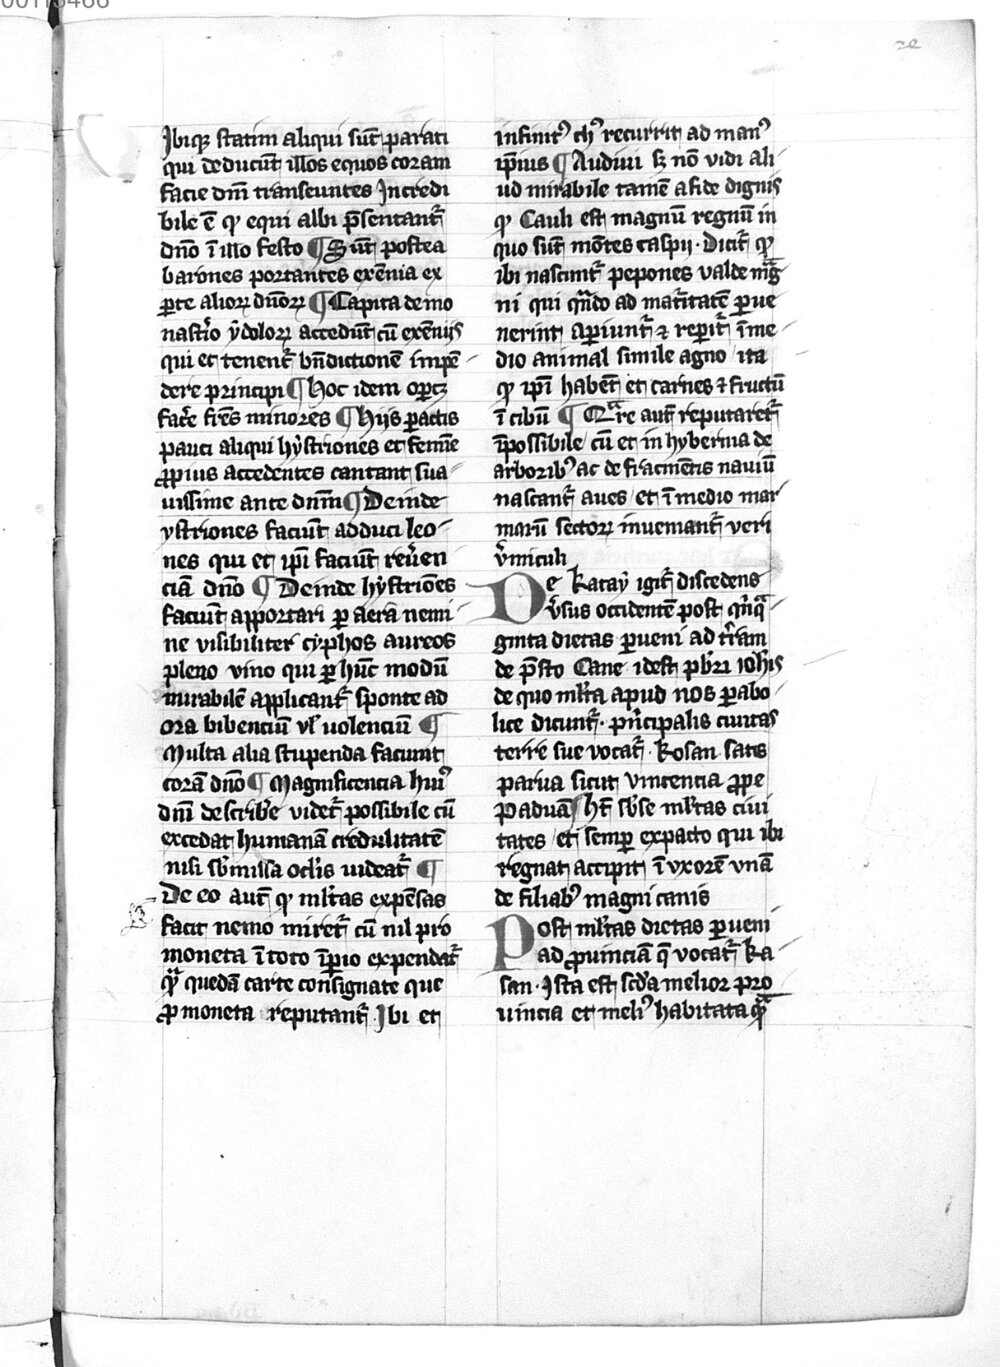 00113466
Ibiqꝫ statim aliqui sūt parati
qui deducūt illos equos coram
facie dn̄i transeuntes Incredi
bile ē ꝙ equi albi p̄sentant᷑
dn̄o ī illo festo ¶ Sūt postea
barones portantes exēnia ex
ꝑte alioꝝ dn̄oꝝ ¶ Capita de mo
nast̄io ẏdoloꝝ accedūt cū exēnijs
qui et tenent᷑ bn̄dictionē impē
dere principi ¶ Hoc idem oportꝫ
fac̄e fr̄es minores ¶ Hijs ꝑactis
pauci aliqui hẏstriones et femīe
ꝓpius accedentes cantant sua
uissime ante dnm̄ ¶ Deinde
ystriones faciūt adduci leo
nes qui et ip̄i faciūt reūen
ciā dn̄o ¶ Deinde hẏstriōes
faciūt apportari ꝑ aera nemi
ne visibiliter cẏphos aureos
pleno vino qui ꝑ hūc modū
mirabilē applicant᷑ sponte ad
ora bibenciū vl̄ uolenciū ¶
Multa alia stupenda faciunt
corā dn̄o ¶ Magnificencia huiꝰ
dn̄i describ̄e videt᷑ possibile cū
excedat humanā credulitatē
nisi sb̄missa oclis uideat᷑ ¶
De eo aut̄ ꝙ ml̄tas expēsas
facit nemo miret᷑ cū nil pro
moneta ī toto īꝑio expendat᷑
qꝛ quedā carte consignate que
ꝓ moneta reputant᷑ Ibi et
infinitꝰ thꝰ recurrit ad manꝰ
ip̄ius ¶ Audiui sꝫ nō vidi ali
ud mirabile tamē a fide dignis
ꝙ Cauli est magnū regnū in
quo sūt mōtes caspij · Dicit᷑ ꝙ
ibi nascunt᷑ pepones valde mag
ni qui qn̄do ad mat̄itatē ꝑue
nerint aꝑiunt᷑ ⁊ reꝑit᷑ īme
dio animal simile agno / ita
ꝙ ip̄i habēt et carnes ⁊ fructū
ī cibū ¶ Qare aut̄ reputaret᷑
īpossibile / cū et in hybernia de
arboribꝰ ac de fracmētis nauiū
nascant᷑ aues / et ī medio mar
marū sectoꝝ inueniant᷑ veri
v̄miculi
De Kataẏ igit᷑ discedens
v̄sus occidentē post qn̄qa
ginta dietas ꝑueni ad tr̄am
de p̄sto Cane · idest pb̄ri ioh̄is
de quo ml̄ta apud nos ꝑabo
lice dicunt᷑ · pn̄cipalis ciuitas
terre sue vocat᷑ · Kosan · satis
parua sicut vincencia ꝓpe
paduā / Hꝫ sb̄ se ml̄tas ciui
tates / et semꝑ ex pacto qui ibi
regnat accipit ī vxorē vnā
de filiabꝰ magni canis
Post ml̄tas dietas ꝑueni
ad ꝓuinciā q̄ vocat᷑ Ka
san · Ista est sc̄da melior pro
uincia et meliꝰ habitata qꝛ